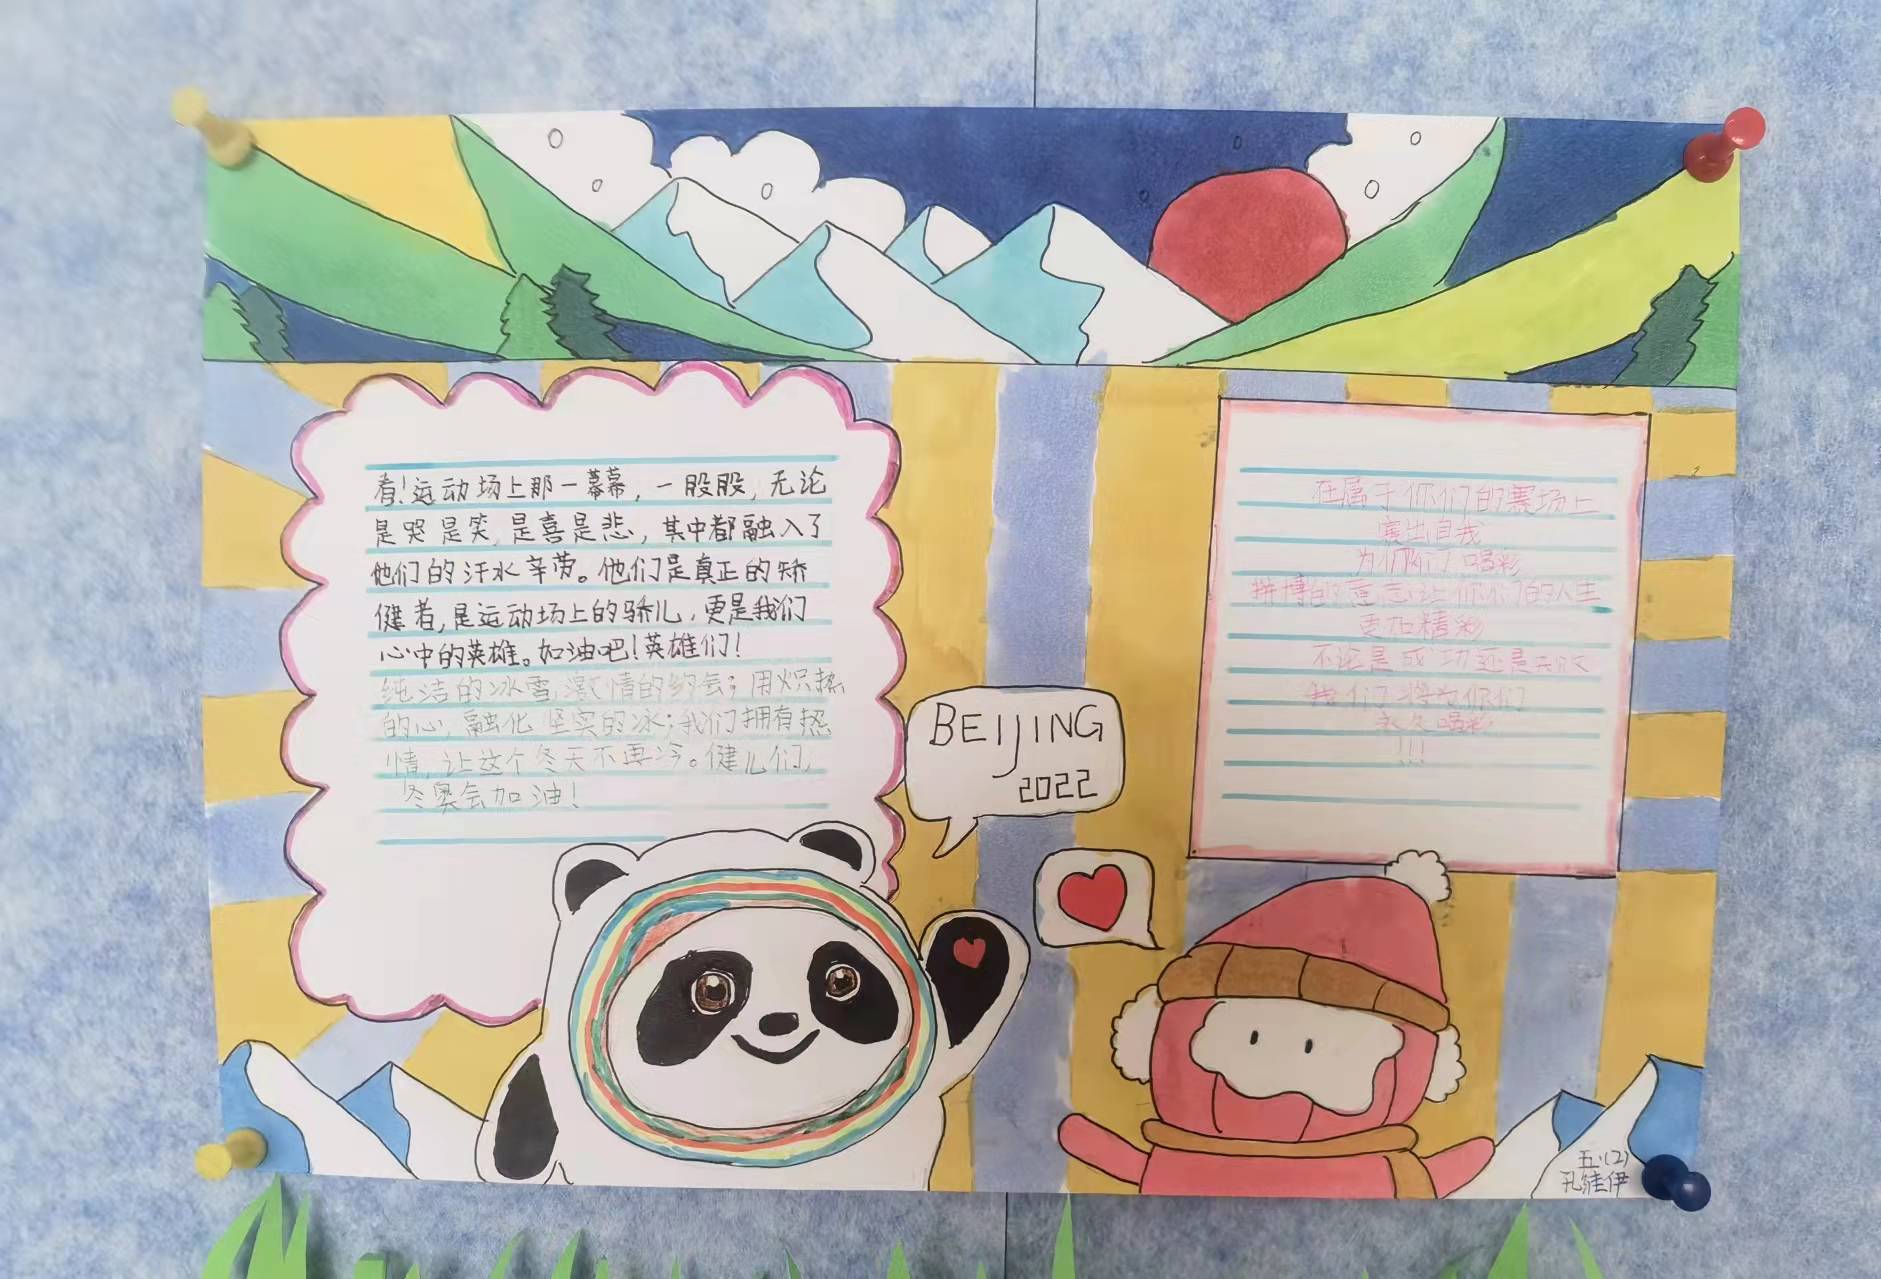 看！运动场上那一幕幕，一股股，无论
是哭是笑，是喜是悲，其中都融入了
他们的汗水辛劳。他们是真正的矫
健者，是运动场上的骄儿，更是我们
心中的英雄。如油吧！英雄们！
纯洁的冰雪，激情的约会；用炽热
的心，融化坚实的冰；我们拥有热
情，让这个冬天不再冷。健儿们，
冬奥会加油！
BEIJING
2022
在属于你们的赛场上
赛出自我
为你们喝彩
拼博的意志让你们的人生
更加精彩
不论是成功还是失败
我们将为你们
永久喝彩
!!!
五(2)
孔维伊